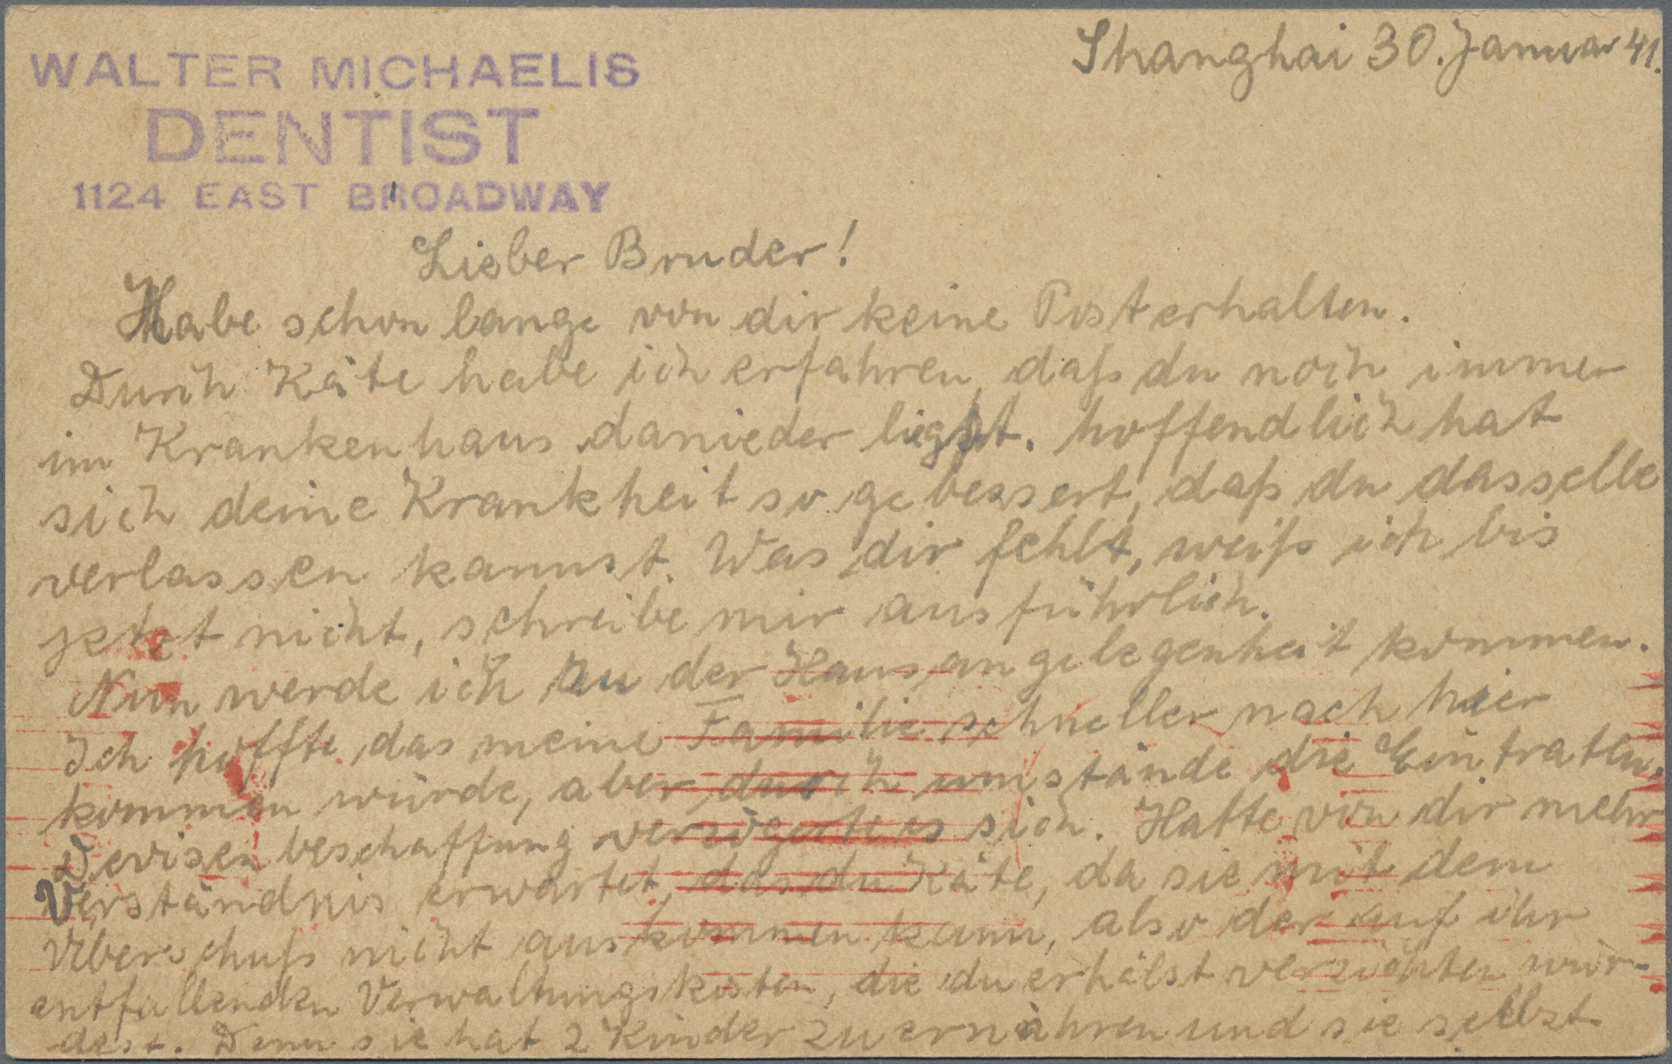 Shanghai 30. Januar 41.
WALTER MICHAELIS
DENTIST
1124 EAST BROADWAY
Lieber Bruder!
Habe schon lange von dir keine Post erhalten.
Durch Käte habe ich erfahren, daß du noch immer
im Krankenhaus danieder liegst. hoffendlich hat
sich deine Krankheit so gebessert, daß du dasselbe
verlassen kannst. Was dir fehlt, weiß ich bis
jetzt nicht, schreibe mir ausführlich.
Nun werde ich zu der Hausangelegenheit kommen.
Ich hoffte, das meine Familie schneller nach hier
kommen würde, aber durch umstände die
Devisenbeschaffung verzögerte es sich. Hatte von dir mehr
Verständnis erwartet, das du Käte, da sie mit dem
Überschuß nicht auskommen kann, also der auf ihr
entfallenden Verwaltungskosten, die du erhälst verzichten wür-
dest. Denn sie hat 2 Kinder zu ernähren und sie selbst